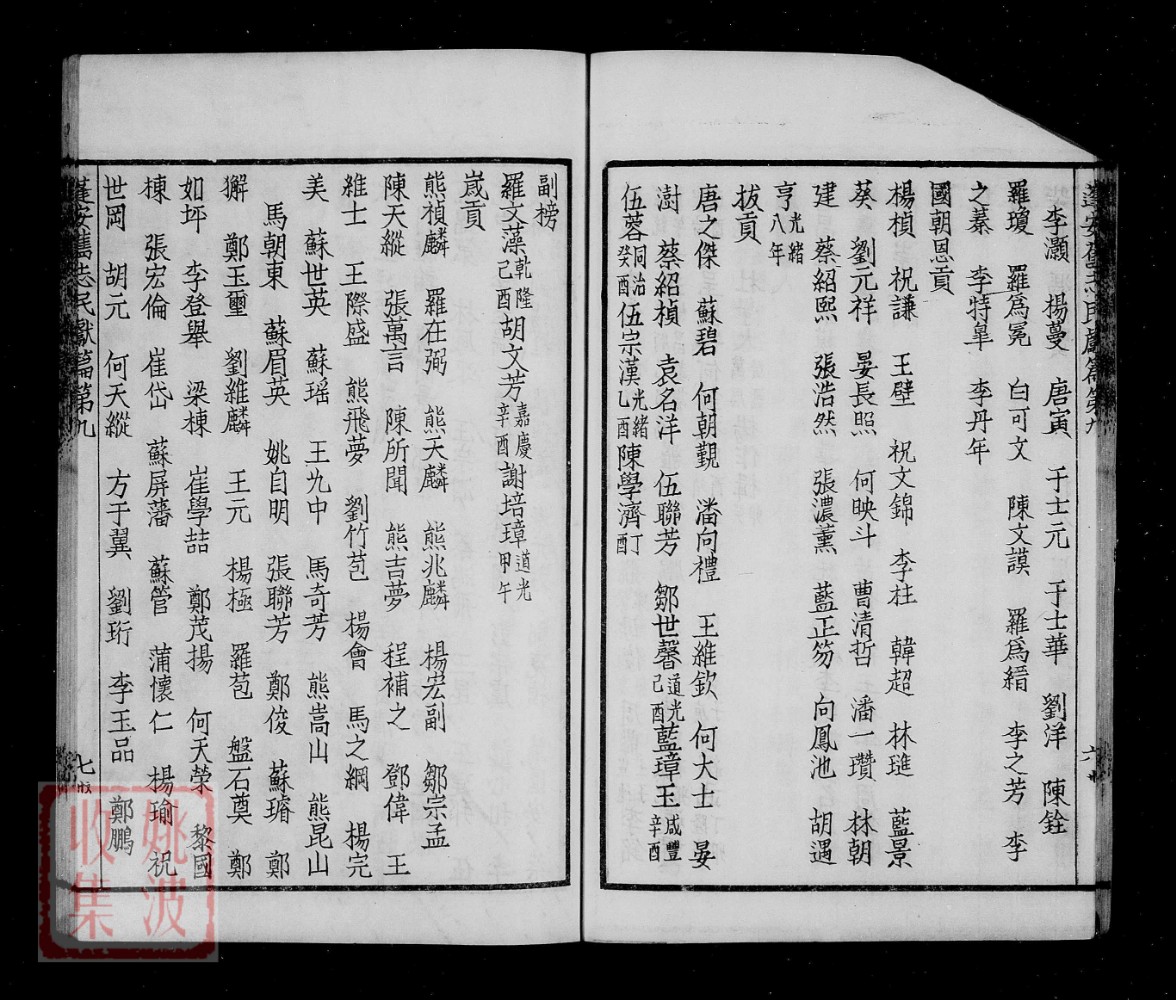 蓬安舊志民獻篇第九
六
李灝　楊蔓　唐寅　于士元　于士華　劉洋　陳銓
羅瓊　羅爲冕　白可文　陳文謨　羅爲縉　李之芳　李
之蓁　李特臯　李丹年
國朝恩貢
楊楨　祝謙　王壁　祝文錦　李柱　韓超　林璡　藍景
葵　劉元祥　晏長照　何映斗　曹清哲　潘一瓚　林朝
建　蔡紹熙　張浩然　張濃薰　藍正笏　向鳳池　胡遇
亨光緒八年
拔貢
唐之傑　蘇碧　何朝覲　潘向禮　王維欽　何大士　晏
澍　蔡紹楨　袁名洋　伍聯芳　鄒世馨道光己酉藍璋玉咸豐辛酉
伍蓉同治癸酉伍宗漢光緒乙酉陳學濟丁酉
副榜
羅文藻乾隆己酉胡文芳嘉慶辛酉謝培璋道光甲午
歲貢
熊楨麟　羅在弼　熊天麟　熊兆麟　楊宏副　鄒宗孟
陳天縱　張萬言　陳所聞　熊吉夢　程補之　鄧偉　王
維士　王際盛　熊飛夢　劉竹苞　楊會　馬之綱　楊完
美　蘇世英　蘇瑤　王九中　馬奇芳　熊嵩山　熊昆山
馬朝東　蘇眉英　姚自明　張聯芳　鄭俊　蘇璿　鄭
獬　鄭玉璽　劉維麟　王元　楊極　羅苞　盤石奠　鄭
如坪　李登舉　梁棟　崔學喆　鄭茂揚　何天榮　黎國
棟　張宏倫　崔岱　蘇屏藩　蘇管　蒲懷仁　楊瑜　祝
世岡　胡元　何天縱　方于翼　劉珩　李玉品　鄭鵬
蓬安舊志民獻篇第九
七
姚波
收集